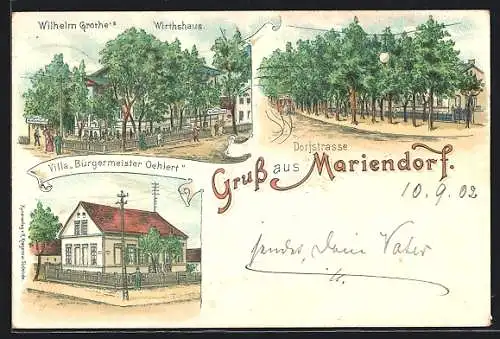 Wilhelm Grothe's Wirthshaus.
Dorfstrasse
Villa „Bürgermeister Oehlert“
Gruß aus Mariendorf.
10.9.02
sendet Dein Vater